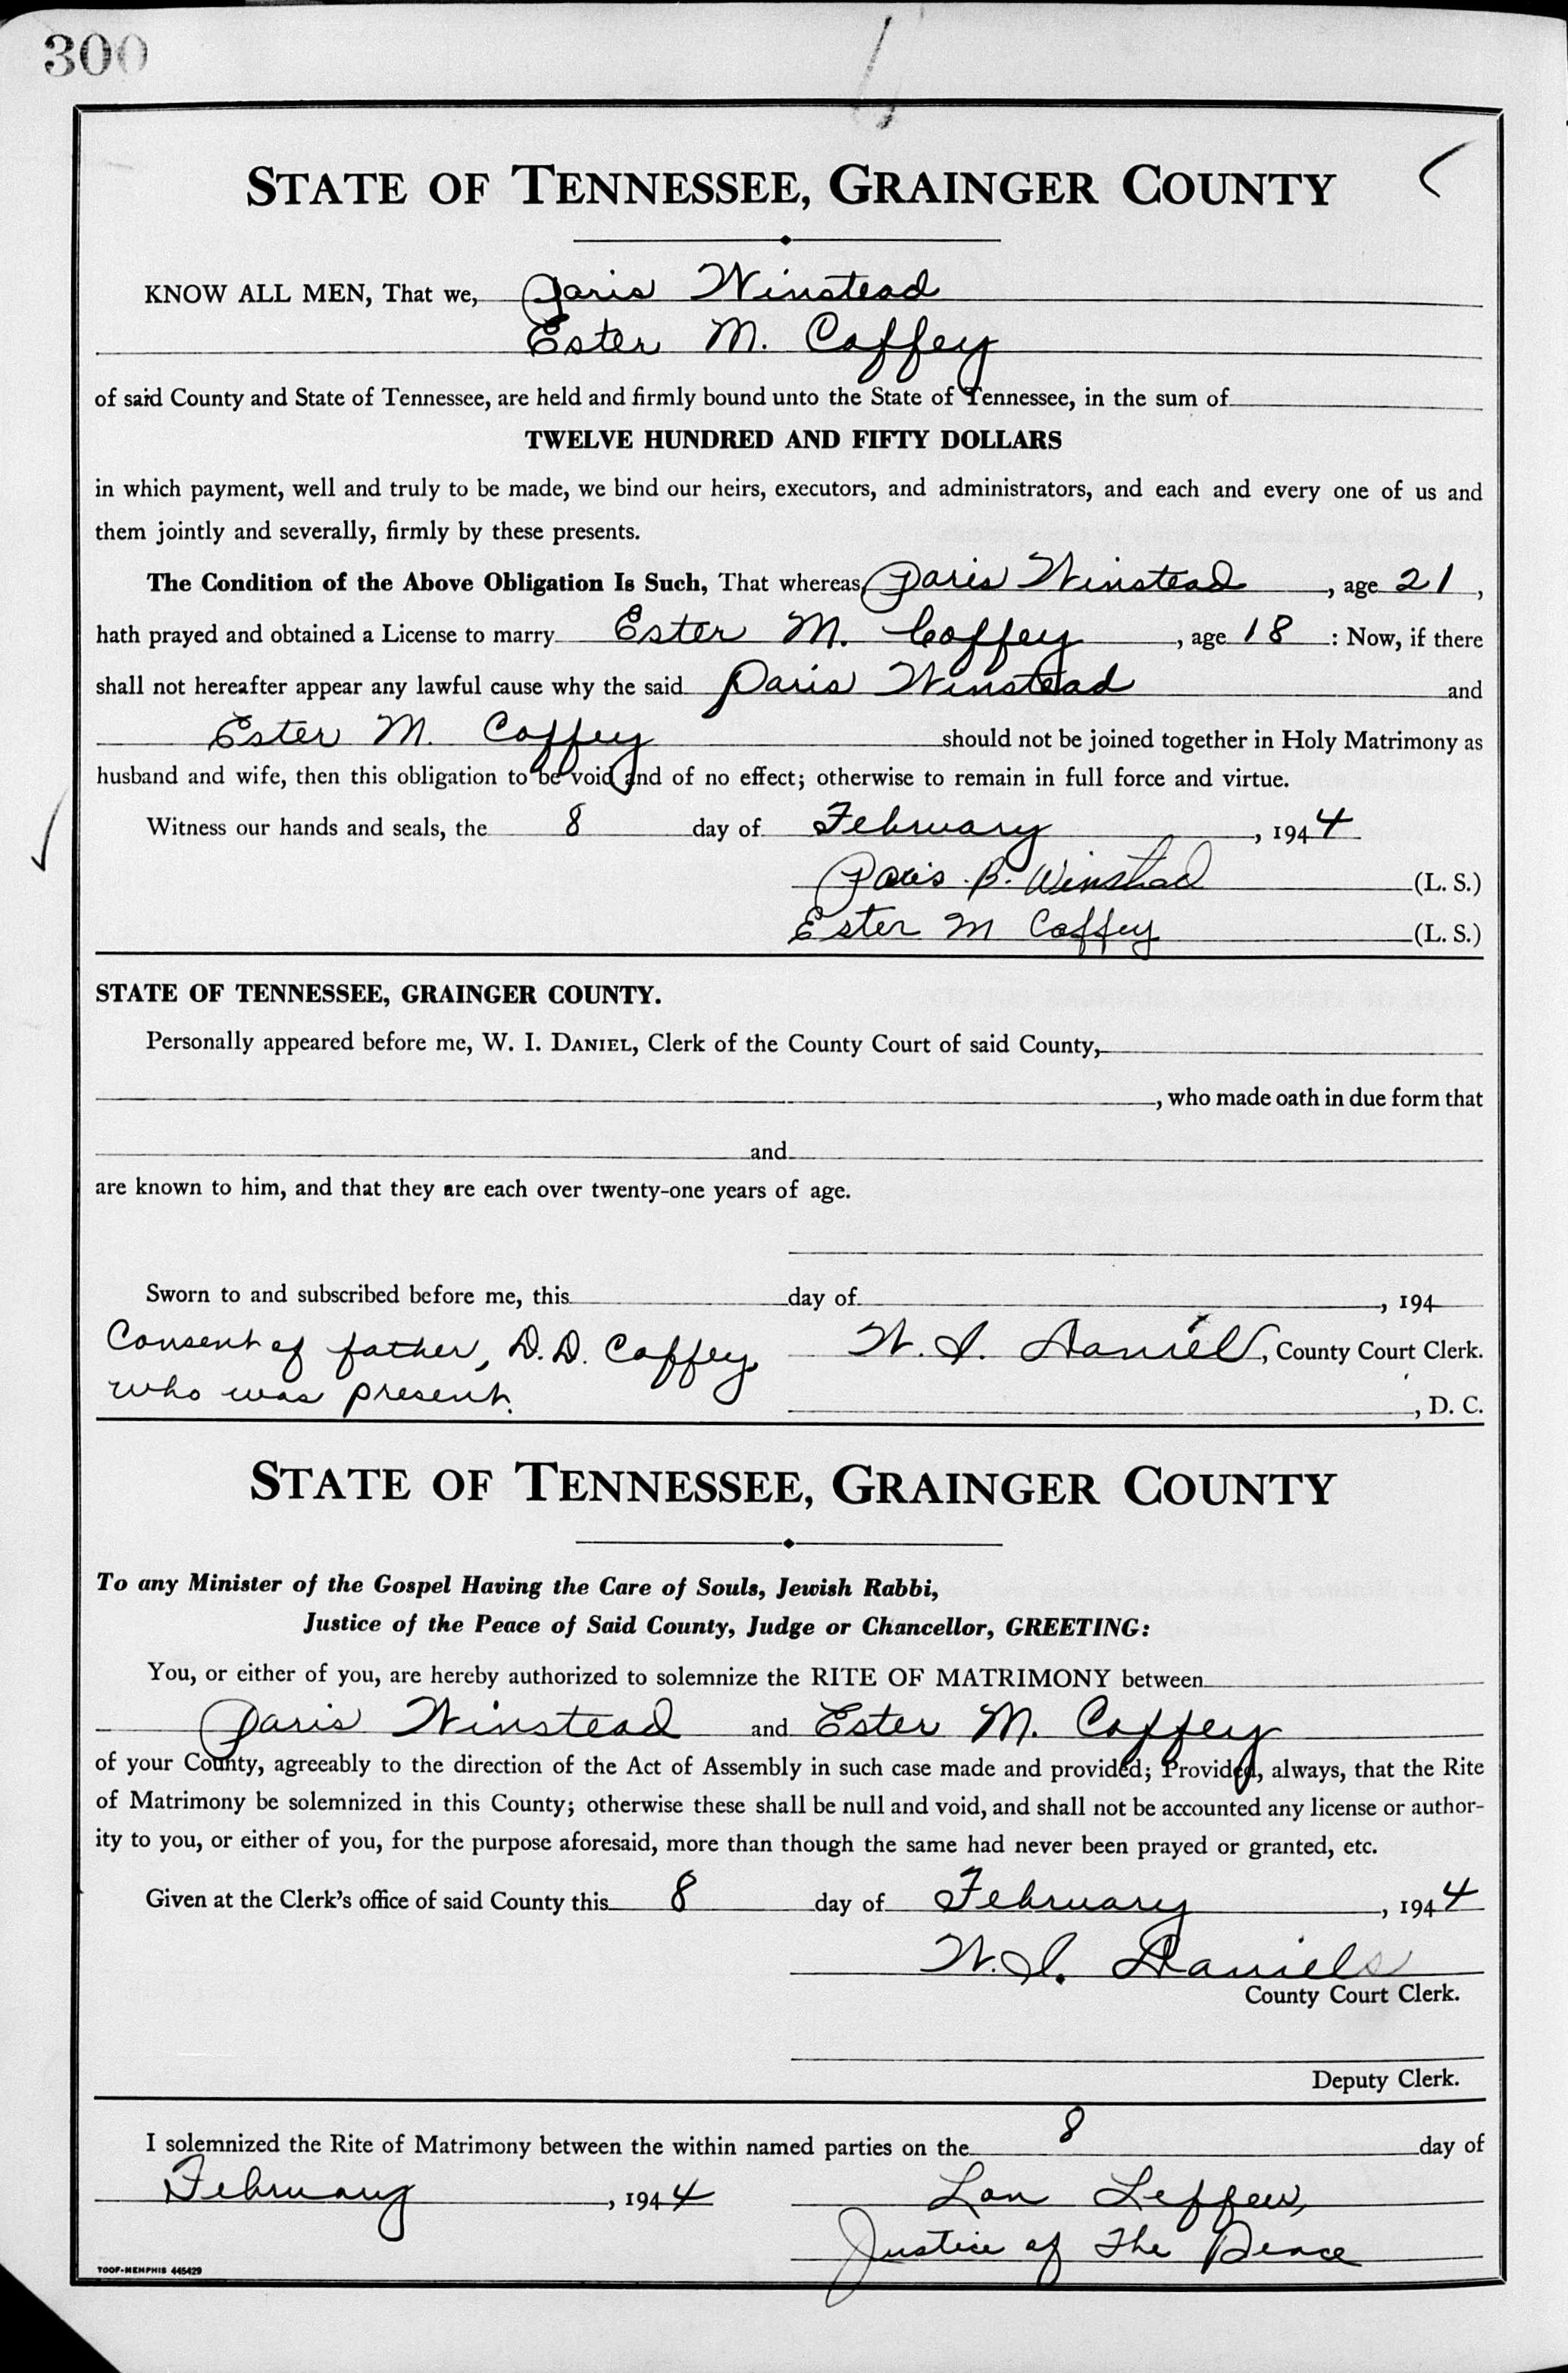 300
STATE OF TENNESSEE, GRAINGER COUNTY
KNOW ALL MEN, That we, Paris Winstead
Ester M. Coffey
of said County and State of Tennessee, are held and firmly bound unto the State of Tennessee, in the sum of
TWELVE HUNDRED AND FIFTY DOLLARS
in which payment, well and truly to be made, we bind our heirs, executors, and administrators, and each and every one of us and
them jointly and severally, firmly by these presents.
The Condition of the Above Obligation Is Such, That whereas, Paris Winstead, age 21,
hath prayed and obtained a License to marry Ester M. Coffey, age 18 : Now, if there
shall not hereafter appear any lawful cause why the said Paris Winstead and
Ester M. Coffey should not be joined together in Holy Matrimony as
husband and wife, then this obligation to be void and of no effect; otherwise to remain in full force and virtue.
Witness our hands and seals, the 8 day of February, 1944
Paris B. Winstead (L. S.)
Ester M Coffey (L. S.)
STATE OF TENNESSEE, GRAINGER COUNTY.
Personally appeared before me, W. I. DANIEL, Clerk of the County Court of said County,
, who made oath in due form that
and
are known to him, and that they are each over twenty-one years of age.
Sworn to and subscribed before me, this day of , 194
Consent of father, D.D. Coffey, W. I. Daniel, County Court Clerk.
who was present. , D. C.
STATE OF TENNESSEE, GRAINGER COUNTY
To any Minister of the Gospel Having the Care of Souls, Jewish Rabbi,
Justice of the Peace of Said County, Judge or Chancellor, GREETING:
You, or either of you, are hereby authorized to solemnize the RITE OF MATRIMONY between
Paris Winstead and Ester M. Coffey
of your County, agreeably to the direction of the Act of Assembly in such case made and provided; Provided, always, that the Rite
of Matrimony be solemnized in this County; otherwise these shall be null and void, and shall not be accounted any license or author-
ity to you, or either of you, for the purpose aforesaid, more than though the same had never been prayed or granted, etc.
Given at the Clerk's office of said County this 8 day of February, 1944
W. I. Daniels
County Court Clerk.
Deputy Clerk.
I solemnized the Rite of Matrimony between the within named parties on the 8 day of
February, 1944 Lon Leffew,
Justice of The Peace
TOOF-MEMPHIS 445429